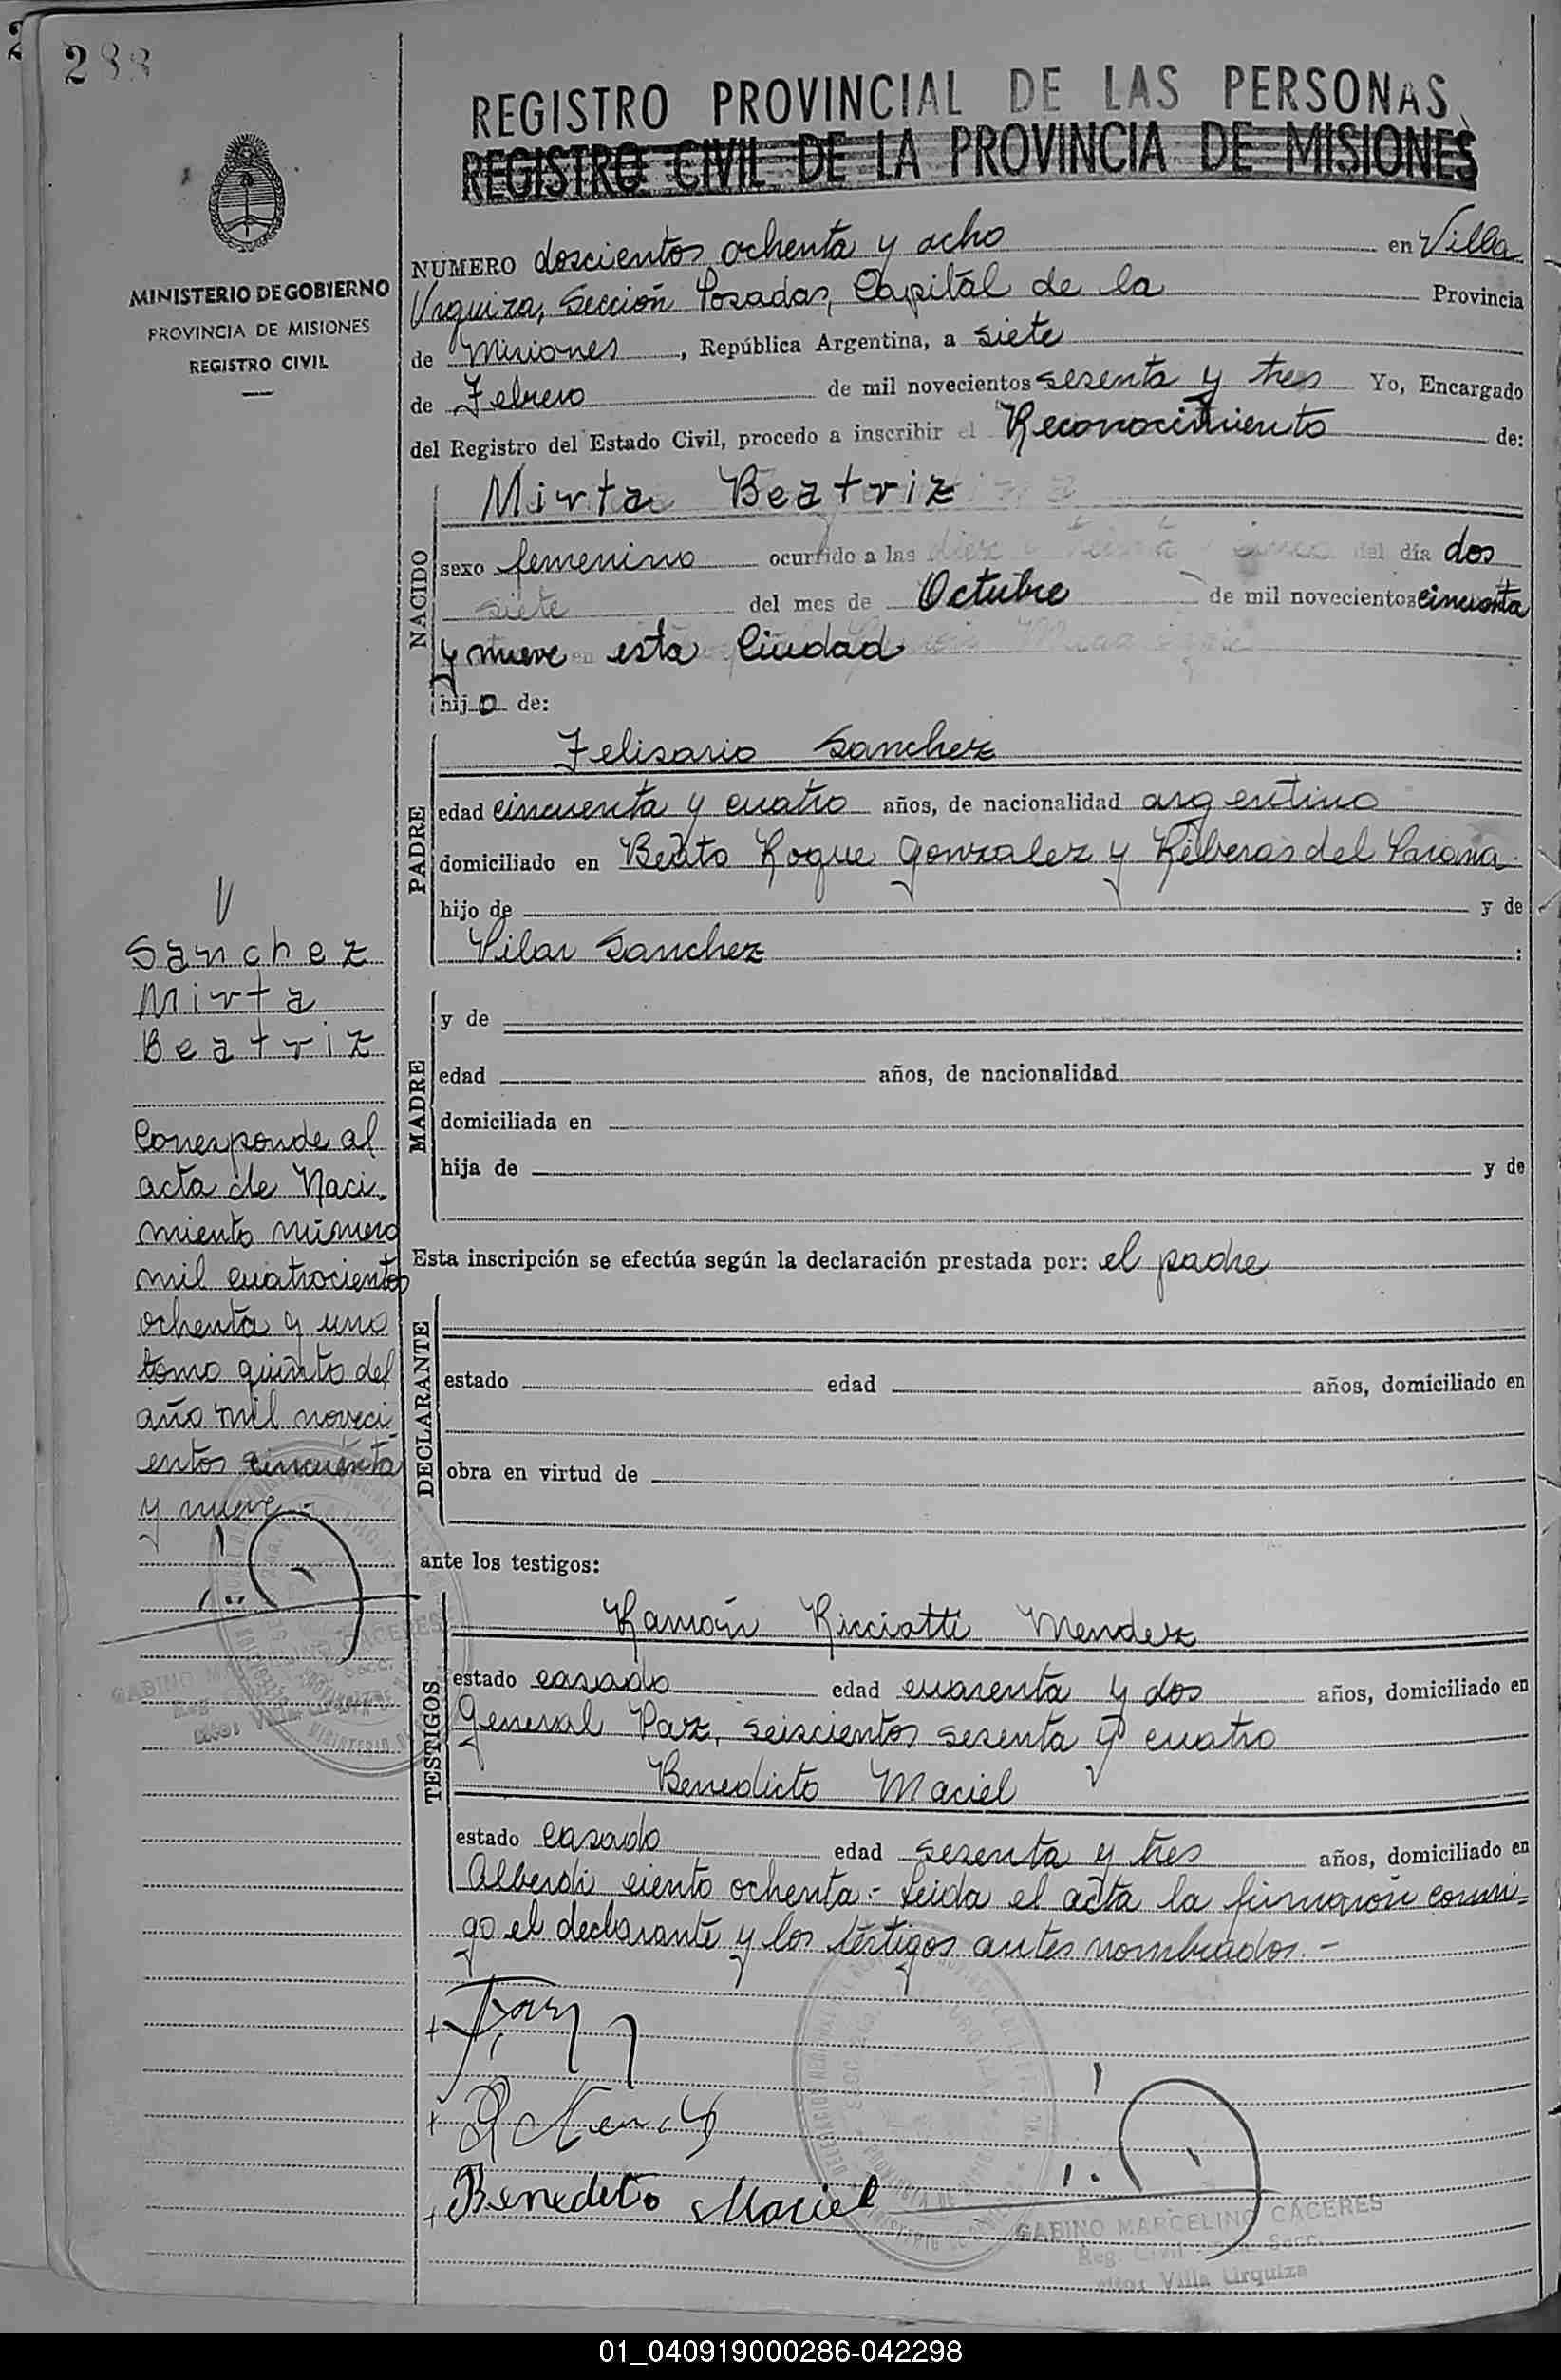 288
REGISTRO PROVINCIAL DE LAS PERSONAS
REGISTRO CIVIL DE LA PROVINCIA DE MISIONES
MINISTERIO DE GOBIERNO
PROVINCIA DE MISIONES
REGISTRO CIVIL
NUMERO doscientos ochenta y ocho en Villa
Urquiza, Sección Posadas, Capital de la Provincia
de Misiones, República Argentina, a siete
de Febrero de mil novecientos sesenta y tres Yo, Encargado
del Registro del Estado Civil, procedo a inscribir el Reconocimiento de:
NACIDO
Mirta Beatriz
sexo femenino ocurrido a las del día dos
siete del mes de Octubre de mil novecientos cincuenta
y nueve en esta Ciudad
hijo de:
PADRE
Felisario Sanchez
edad cincuenta y cuatro años, de nacionalidad argentino
domiciliado en Beato Roque Gonzalez y Riberas del Parana
hijo de y de
Pilar Sanchez :
MADRE
y de
edad años, de nacionalidad
domiciliada en
hija de y de
Esta inscripción se efectúa según la declaración prestada por: el padre
DECLARANTE
estado edad años, domiciliado en
obra en virtud de
ante los testigos:
TESTIGOS
Ramón Ricciotti Mendez
estado casado edad cuarenta y dos años, domiciliado en
General Paz, seiscientos sesenta y cuatro
Benedicto Maciel
estado casado edad sesenta y tres años, domiciliado en
Alberdi ciento ochenta.- Leida el acta la firmaron conmi=
go el declarante y los testigos antes nombrados.-
Benedito Maciel
GABINO MARCELINO CÁCERES
Reg. Civil Secc.
Villa Urquiza
Sanchez
Mirta
Beatriz
Corresponde al
acta de Naci-
miento número
mil cuatrocientos
ochenta y uno
tomo quinto del
año mil noveci
entos cincuenta
y nueve.-
01_040919000286-042298